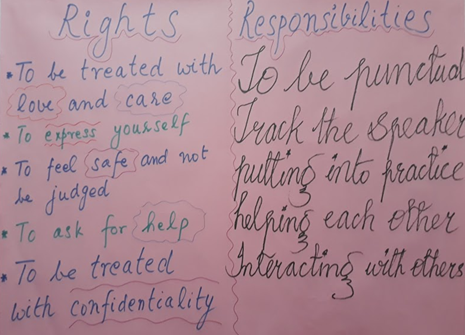 Rights
* To be treated with
love and care
* To express yourself
* To feel safe and not
be judged
* To ask for help
* To be treated
with confidentiality
Responsibilities
To be punctual
Track the speaker
putting into practice
helping each other
Interacting with others